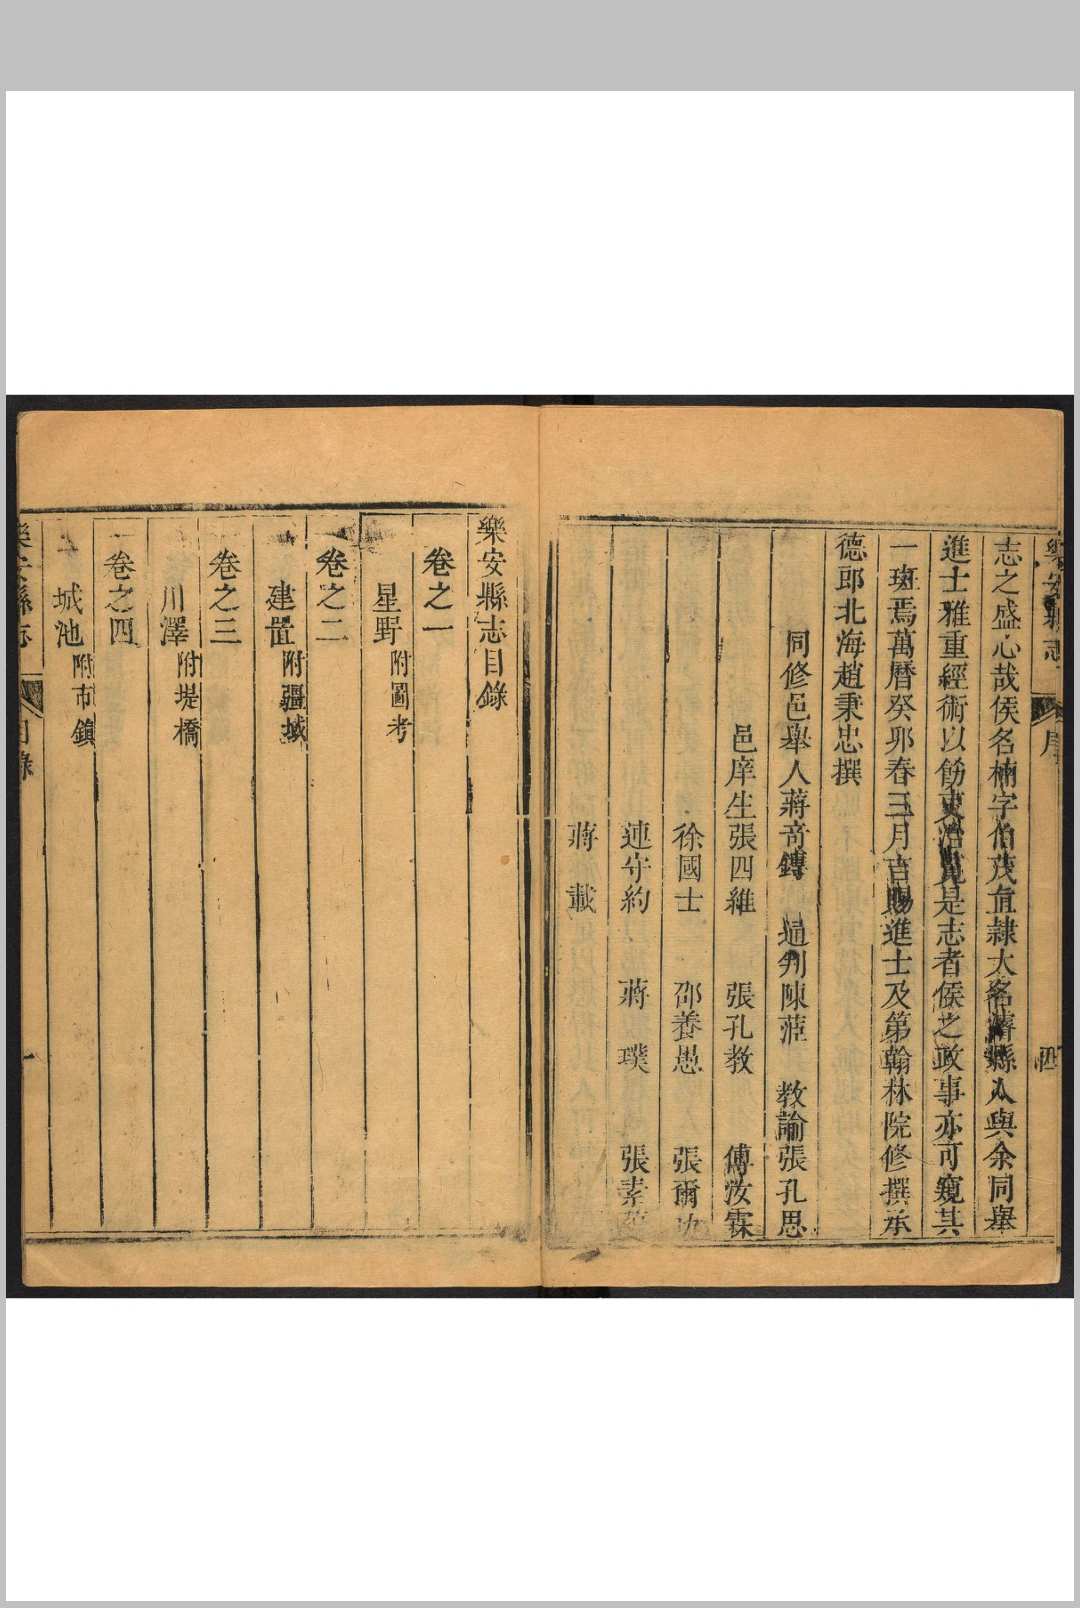 樂安縣志 序 四
志之盛心哉侯名楠字伯茂直隷大名濬縣人與余同舉
進士雅重經術以飭吏治覽是志者侯之政事亦可窺其
一斑焉萬曆癸卯春三月吉賜進士及第翰林院修撰承
德郎北海趙秉忠撰
同修邑舉人蔣奇鏄 通判陳蒞 教諭張孔思
邑庠生張四維 張孔教 傅汝霖
徐國士 邵養愚 張爾功
連守約 蔣璞 張素
蔣載
樂安縣志目錄
卷之一
星野附圖考
卷之二
建置附疆域
卷之三
川澤附堤橋
卷之四
城池附市鎮
樂安縣志 目錄 一